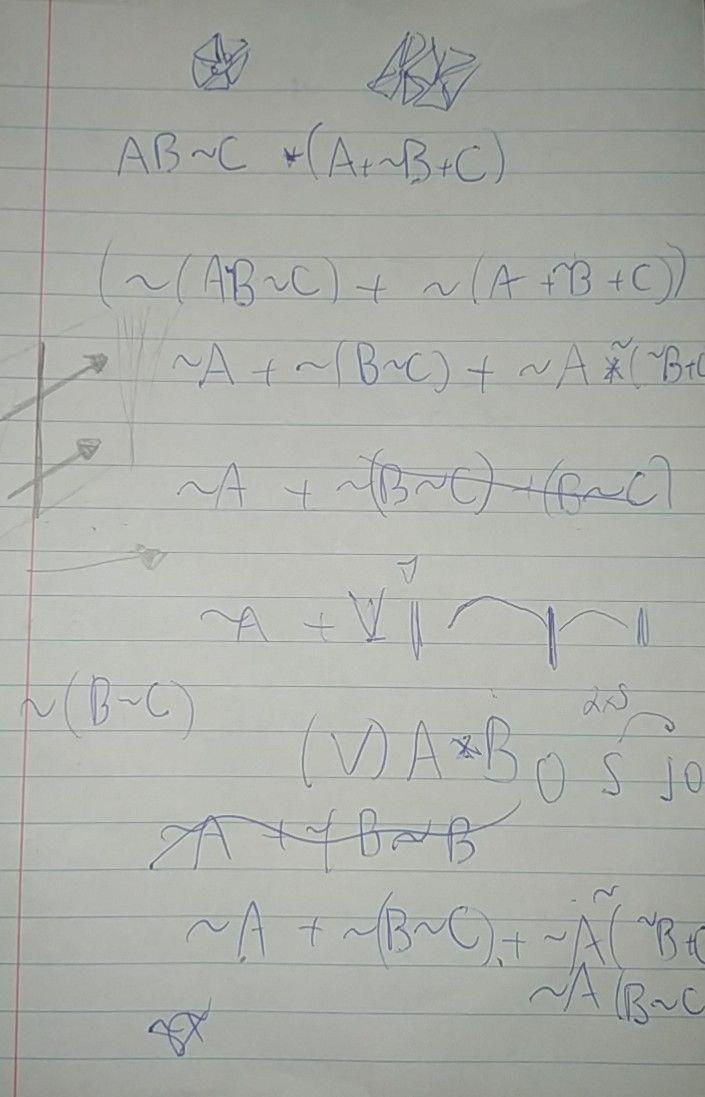 AB~C *(A+~B+C)
(~(AB~C) + ~(A+~B+C))
~A + ~(B~C) + ~A *~(~B+C
~A + ~(B~C) + (B~C)
~A + V
~(B~C)
(V) A*B 0 5 10
~A + ~(B~B
~A + ~(B~C) + ~A ~(~B+C
~A (B~C